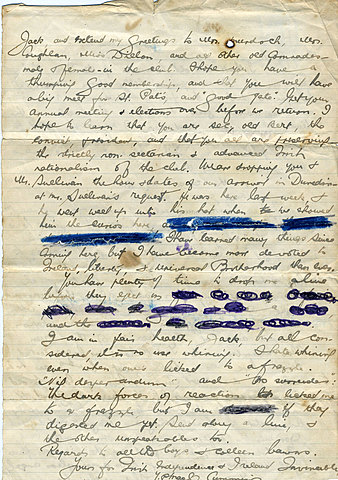 Jack and extend my Greetings to Mrs. Murdoch, Mrs.
Coughlan, Miss Dillon and all other old Comrades -
male & female - in the club. I hope you have a
thumping Good membership, and will you will have
a big meet for St. Pat's and good "gate". Get your
annual meeting & elections over before we return. I
hope to learn that you are sec, old Bert, the
president, and that you all are preserving
the strictly non-sectarian & advanced Irish
nationalism of the club. We are dropping you &
Mr. Sullivan the hours & dates of our arrival in Dunedin
at Mr. Sullivan's request. He was here last week &
he went well up into his hat when he showed
him the curios we
I have learned many things since
coming here but I have become more devoted to
Ireland, liberty & universal Brotherhood than ever.
You have plenty of time to drop me a line
before they
and the
I am in fair health, Jack, but all con-
sidered it is no use whining. I hate whining
even when one is licked to a frazzle.
"Nil desperandum" and "No surrender".
the dark forces of reaction licked me
to a frazzle but I am if they
digested me yet. Send along a line, &
the other unspeakables too.
Regards to all boys & colleen bawns.
Yours for Irish Independence & Ireland Invincible